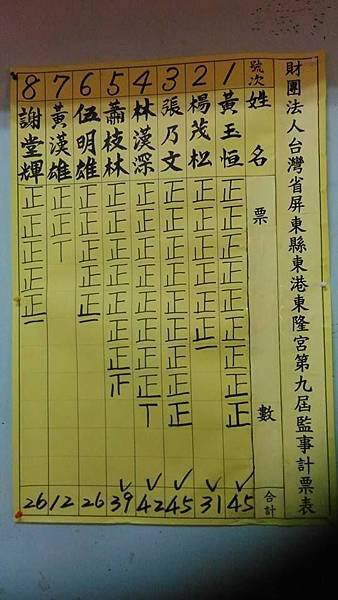 財團法人台灣省屏東縣東港東隆宮第九屆監事計票表
號次 姓名 票數 合計
1 黃玉恒 正正正正正正正正正 ✓ 45
2 楊茂松 正正正正正正一 ✓ 31
3 張乃文 正正正正正正正正正 ✓ 45
4 林漢深 正正正正正正正正丅 ✓ 42
5 蕭枝林 正正正正正正正 ✓ 39
6 伍明雄 正正正正正一 26
7 黃漢雄 正正丅 12
8 謝堂輝 正正正正正一 26